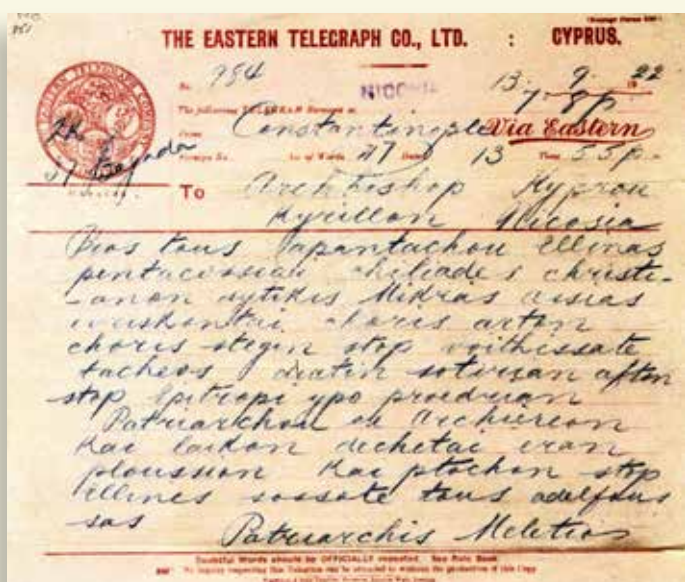 THE EASTERN TELEGRAPH CO., LTD. : CYPRUS.
No. 984 NICOSIA 13 9 1922
The following TELEGRAM Received at 7.8 p
From Constantinople Via Eastern
Foreign No. No. of Words 47 Date 13 Time 55 p. m.
EASTERN TELEGRAPH COMPANY
To Archbishop Kyprou
Kyrillon Nicosia
Pros tous apantachou Ellinas
pentacossiai chiliades christi-
-anon dytikis Mikras Asias
evriskontai choris arton
choris stegin stop voithissate
tacheos diatin sotirian afton
stop Epitropi ypo proedrian
Patriarchou ex Archiereon
kai laikon dechetai eran
ploussion kai ptochon stop
Ellines sossate tous adelfous
sas
Patriarchis Meletios
Doubtful Words should be OFFICIALLY repeated. See Rule Book
No inquiry respecting this Telegram can be attended to without the production of this Copy